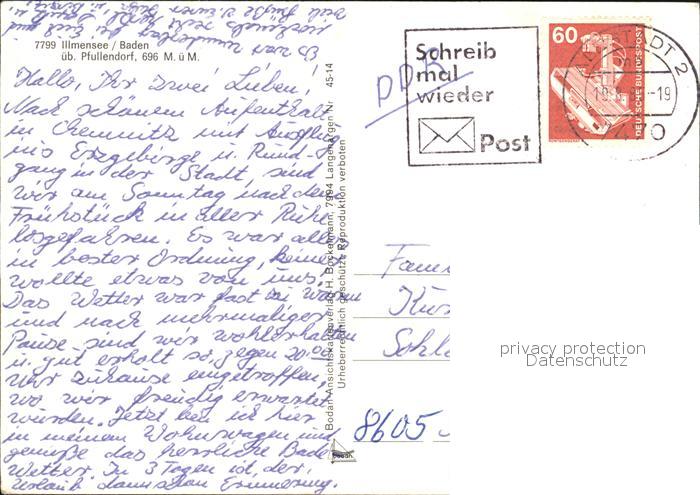 7799 Illmensee / Baden
üb. Pfullendorf, 696 M. ü M.
Hallo, Ihr zwei Lieben!
Nach schönem Aufenthalt
in Chemnitz mit Ausflug
ins Erzgebirge u. Rund-
gang in der Stadt, sind
wir am Sonntag nach dem
Frühstück in aller Ruhe
losgefahren. Es war alles
in bester Ordnung, keiner
wollte etwas von uns.
Das Wetter war fast zu warm
und nach mehrmaliger
Pause sind wir wohlerhalten
u. gut erholt so gegen 20.00
Uhr zuhause eingetroffen,
wo wir freudig erwartet
wurden. Jetzt bin ich hier
in meinem Wohnwagen und
genieße das herrliche Bade
Wetter. In 3 Tagen ist der
Urlaub dann schon Erinnerung.
Bodan-Ansichtskartenverlag H. Bockelmann, 7994 Langenargen Nr. 45-14
Urheberrechtlich geschützt. Reproduktion verboten
bodan
DDR
Schreib
mal
wieder
Post
60
DEUTSCHE BUNDESPOST
STADT 2
-19
Fam
Kur
Schl
8605
privacy protection
Datenschutz